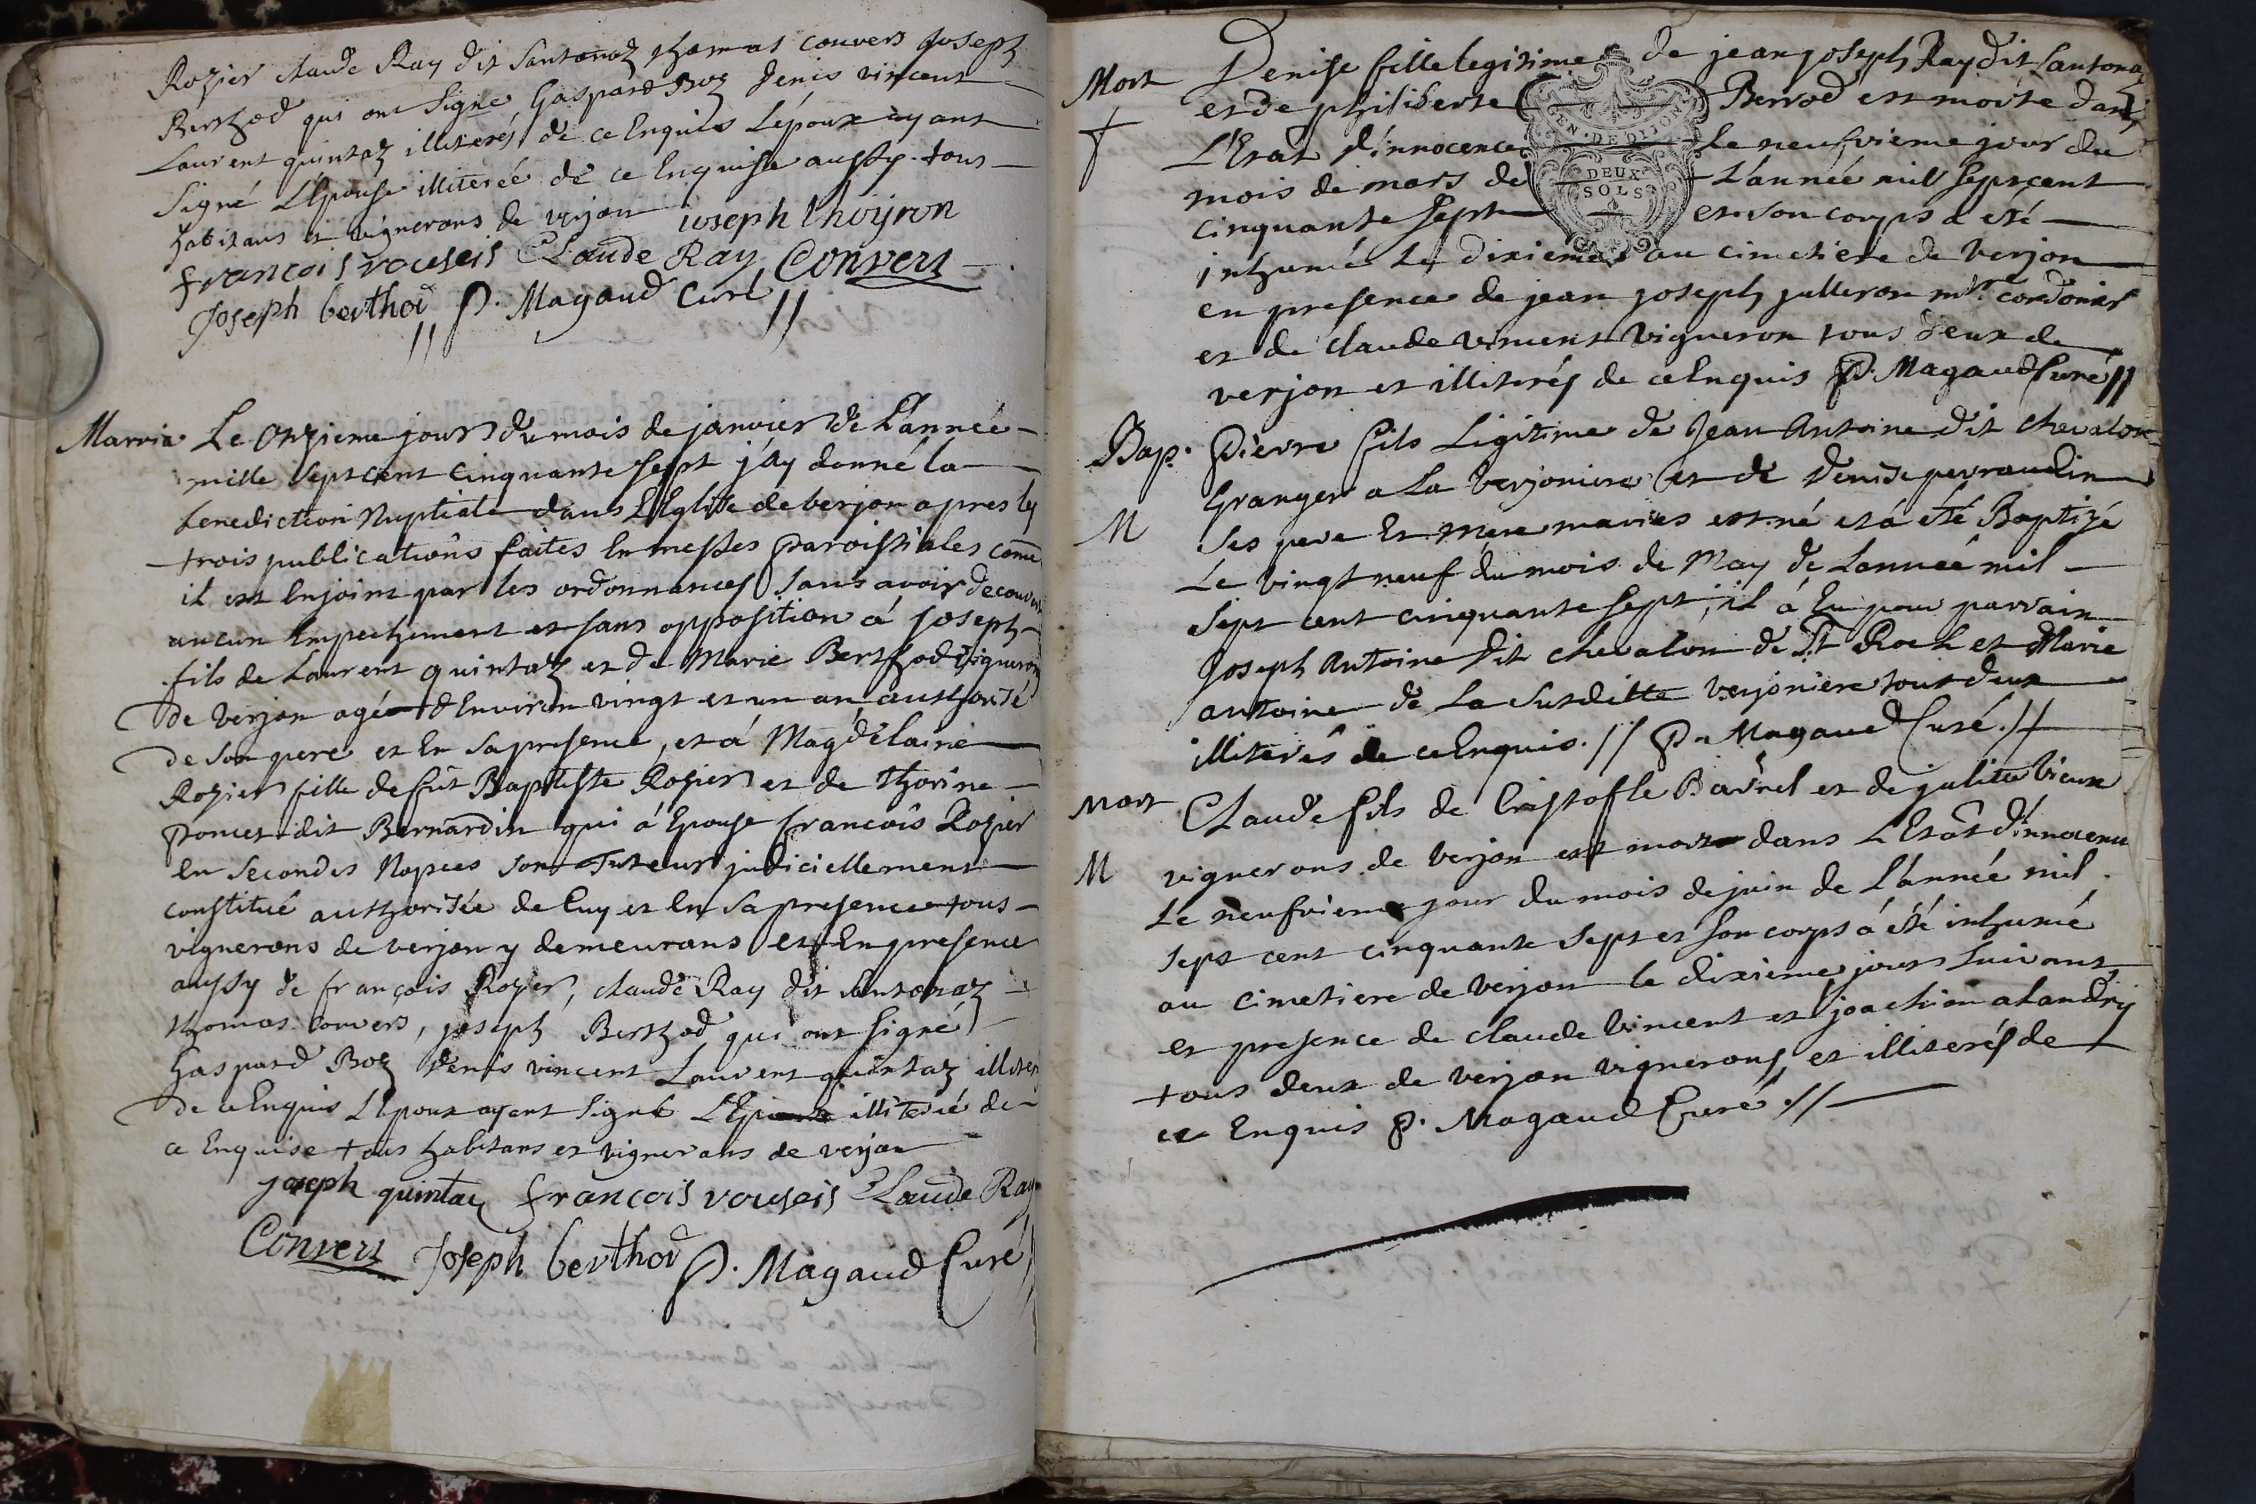 Rozier claude Ray dit Santonaz thomas convers Joseph
Berthod qui ont signé Gaspard Boz Denis vincent
Laurent quintaz illiterés de ce Enquis L'époux ayant
signé L'Epouse illiterée de ce Enquise aussy tous
habitans et vignerons de verjon ioseph lhoijron
francois rouseis Claude Ray Convers
Joseph berthod P. Magaud Curé
Marria Le Onzieme jour du mois de janvier de L'année
mille sept cent cinquante sept j'ay donné la
benediction Nuptiale dans L'Eglise de verjon apres les
trois publications faites En messes paroissiales come
il est Enjoint par les ordonnances sans avoir decouvert
aucun Empechement et sans opposition á Joseph
fils de Laurent quintaz et de Marie Berthod vigneron
de verjon agé d'Environ vingt et un an authorisé
de son pere et En sa presence, et á Magdelaine
Rozier fille de fût Baptiste Rozier et de thorine
poncet dit Bernardin qui á Epouse francois Rozier
En secondes Nopces son Tuteur judiciellement
constitué authorisée de luy et En sa presence tous
vignerons de verjon y demeurans et En presence
aussy de françois Rozier, claude Ray dit santonaz
thomas convers, joseph Berthod qui ont signé
Gaspard Boz denis vincent Laurent quintaz illiter
de ce Enquis L'Epoux ayent signé L'Epouse illiterée de
ce Enquise tous habitans et vignerons de verjon
joseph quintaz francois rouseis Claude Ray
Convers Joseph berthod P. Magaud Curé
Mort Denise fille legitime de jean joseph Ray dit Santonaz
et de philiberte Berrod est morte dans
L'Etat d'innocence le neufvieme jour du
mois de mars de L'année mil sept cent
cinquante sept et son corps a été
inhumé le dixieme au cimetiere de verjon
en presence de jean joseph julleron mtre cordonier
et de claude vincent vigneron tous deux de
verjon et illiterés de ce Enquis P. Magaud Curé
GEN. DE DIJON
DEUX
SOLS
Bap. Pierre fils Legitime de Jean Antoine dit chevalon
Granger a La verjoniere et de Denise perraudin
M ses pere Et mere mariés est né et á été Baptizé
Le vingt neuf du mois de May de Lannée mil
sept cent cinquante sept, il á Eu pour parrain
Joseph Antoine dit chevalon de St Roch et Marie
antoine de La susditte verjoniere tous deux
illiterés de ce Enquis. P. Magaud Curé.
Mort Claude fils de Cristofle Barrel et de julite vieux
M vignerons de verjon est mort dans L'Etât d'innocence
Le neufvieme jour du mois de juin de L'année mil
sept cent cinquante sept et son corps á été inhumé
au cimetiere de verjon le dixieme jour suivant
et presence de claude vincent et joachim alandrij
tous deux de verjon vignerons et illiterés de
ce Enquis P. Magaud Curé.